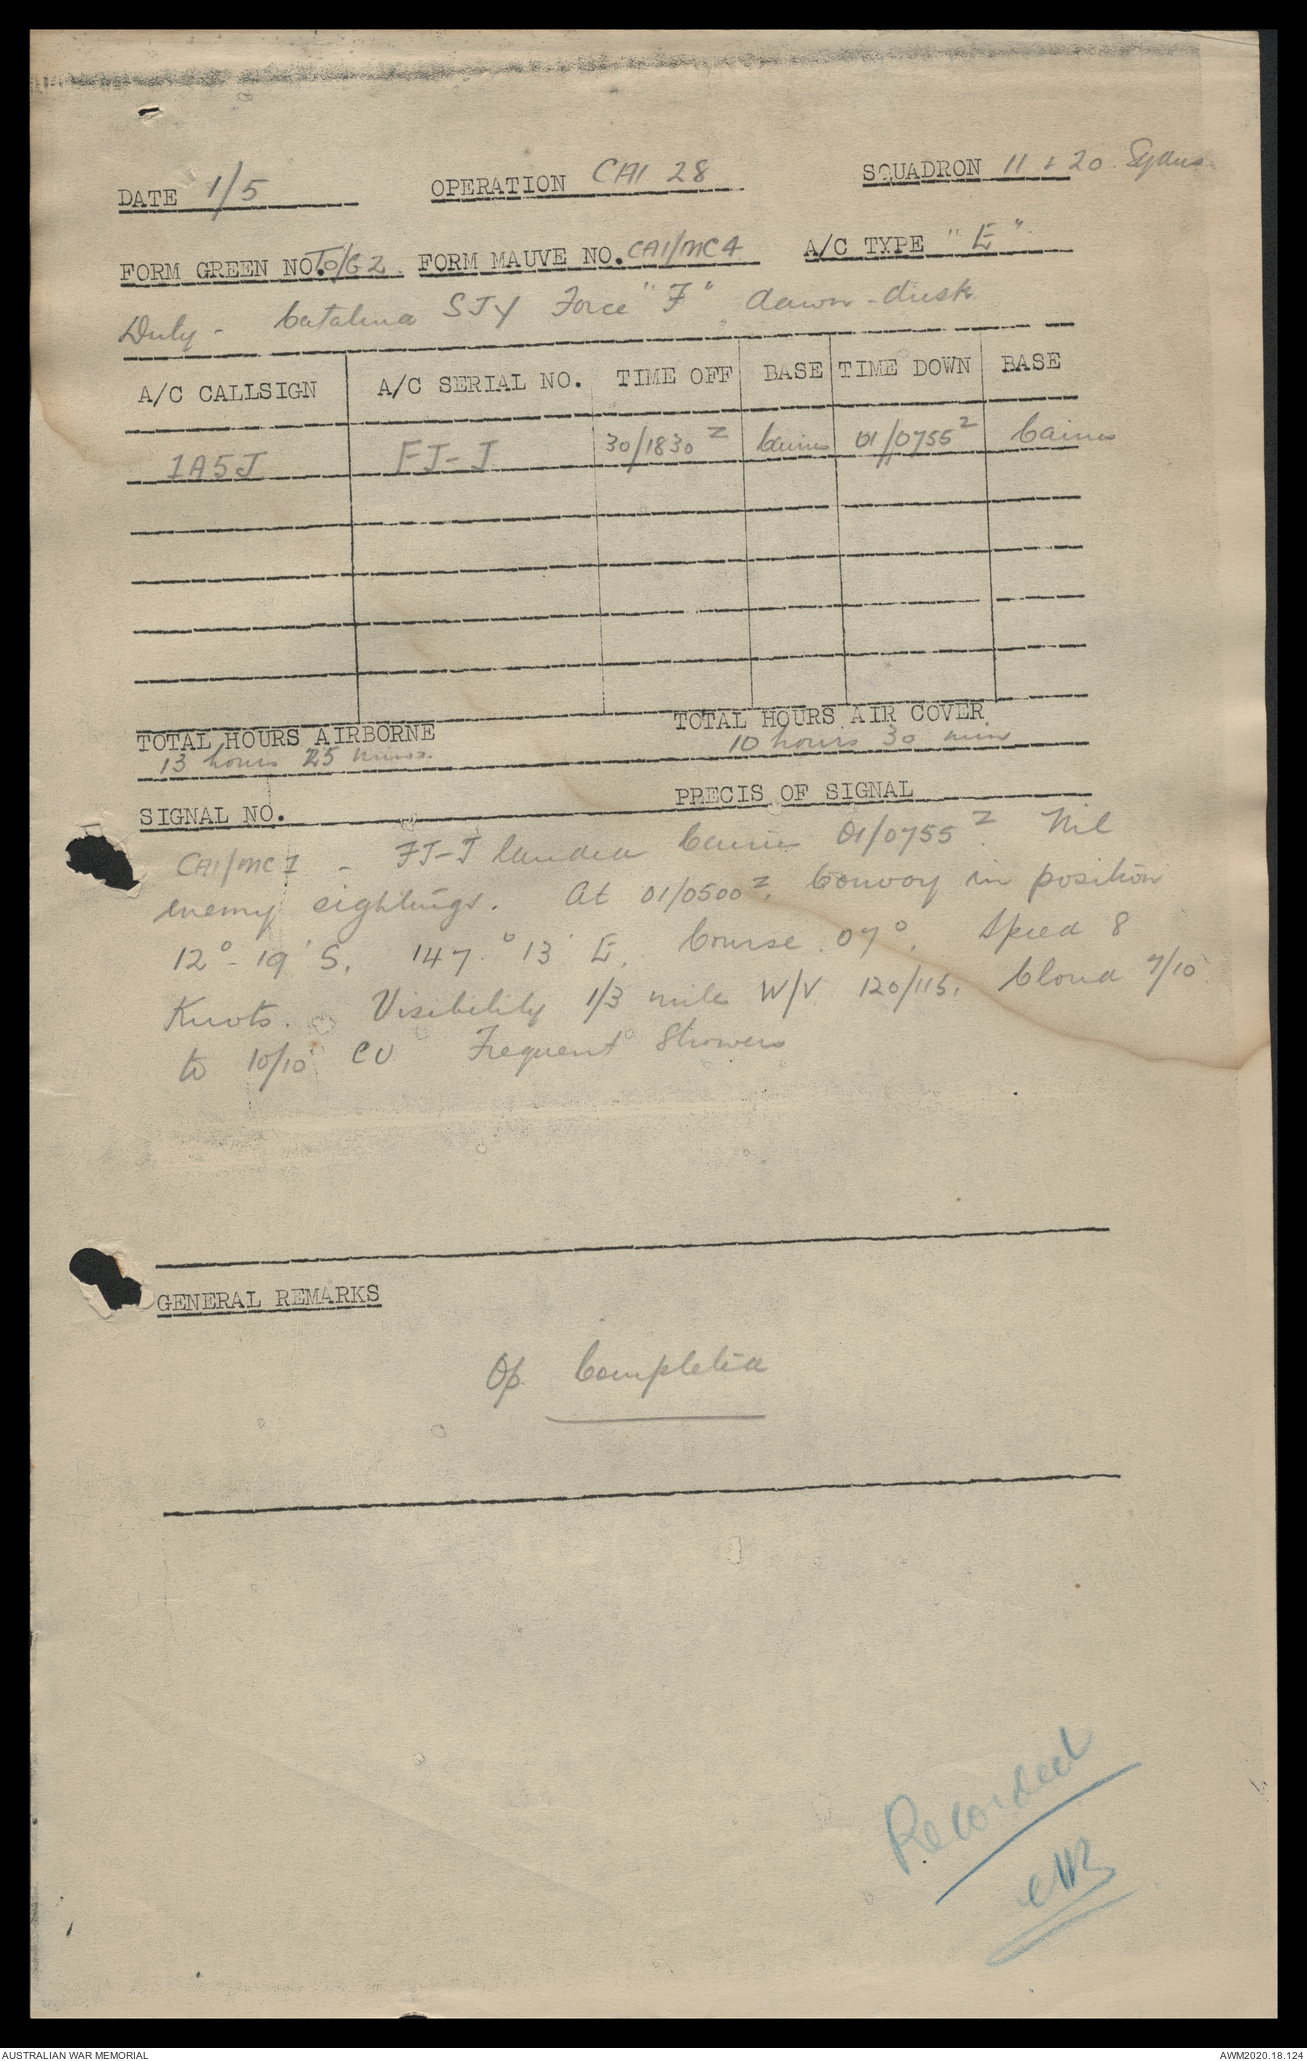 DATE 1/5 OPERATION CAI 28 SQUADRON 11 & 20 Sqdns
FORM GREEN NO. TO/G2 FORM MAUVE NO. CAI/MC4 A/C TYPE "E"
Duty - Catalina S/Y Force "F" dawn-dusk
A/C CALLSIGN A/C SERIAL NO. TIME OFF BASE TIME DOWN BASE
1A5J FJ-J 30/1830Z Cairns 01/0755Z Cairns
TOTAL HOURS AIRBORNE TOTAL HOURS AIR COVER
13 hours 25 mins. 10 hours 30 min
SIGNAL NO. PRECIS OF SIGNAL
CAI/MC1 - FJ-J landed Cairns 01/0755Z. Nil
enemy sightings. At 01/0500Z. Convoy in position
12°-19'S, 147°13'E. Course 07°. Speed 8
Knots. Visibility 1/3 mile W/V 120/115. Cloud 7/10
to 10/10 CU Frequent Showers
GENERAL REMARKS
Op Completed
Recorded
AUSTRALIAN WAR MEMORIAL AWM2020.18.124